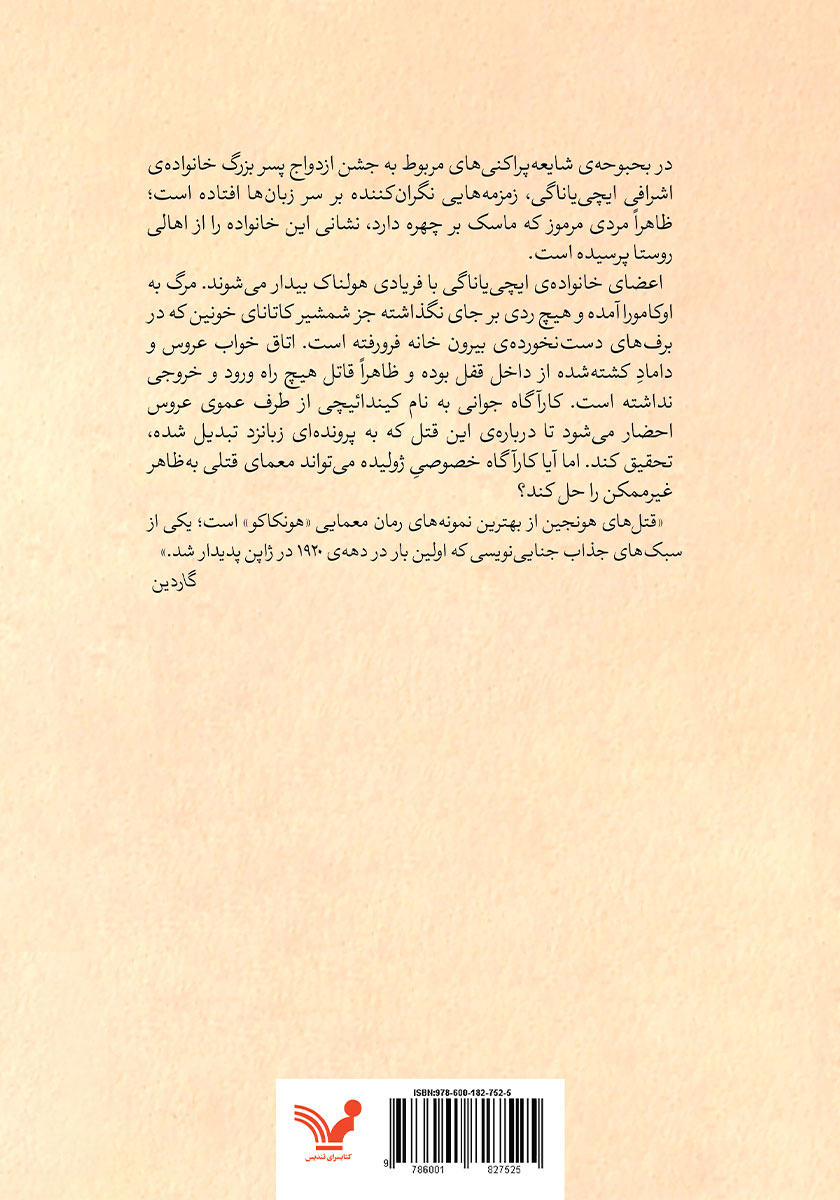 در بحبوحه‌ی شایعه‌پراکنی‌های مربوط به جشن ازدواج پسر بزرگ خانواده‌ی
اشرافی ایچی‌یاناگی، زمزمه‌هایی نگران‌کننده بر سر زبان‌ها افتاده است؛
ظاهراً مردی مرموز که ماسک بر چهره دارد، نشانی این خانواده را از اهالی
روستا پرسیده است.
اعضای خانواده‌ی ایچی‌یاناگی با فریادی هولناک بیدار می‌شوند. مرگ به
اوکامورا آمده و هیچ ردی بر جای نگذاشته جز شمشیر کاتانای خونین که در
برف‌های دست‌نخورده‌ی بیرون خانه فرورفته است. اتاق خواب عروس و
دامادِ کشته‌شده از داخل قفل بوده و ظاهراً قاتل هیچ راه ورود و خروجی
نداشته است. کارآگاه جوانی به نام کیندائیچی از طرف عموی عروس
احضار می‌شود تا درباره‌ی این قتل که به پرونده‌ای زبانزد تبدیل شده،
تحقیق کند. اما آیا کارآگاه خصوصیِ ژولیده می‌تواند معمای قتلی به‌ظاهر
غیرممکن را حل کند؟
«قتل‌های هونجین از بهترین نمونه‌های رمان معمایی «هونکاکو» است؛ یکی از
سبک‌های جذاب جنایی‌نویسی که اولین بار در دهه‌ی ۱۹۲۰ در ژاپن پدیدار شد.»
گاردین
ISBN:978-600-182-752-5
9 786001 827525
کتابسرای تندیس